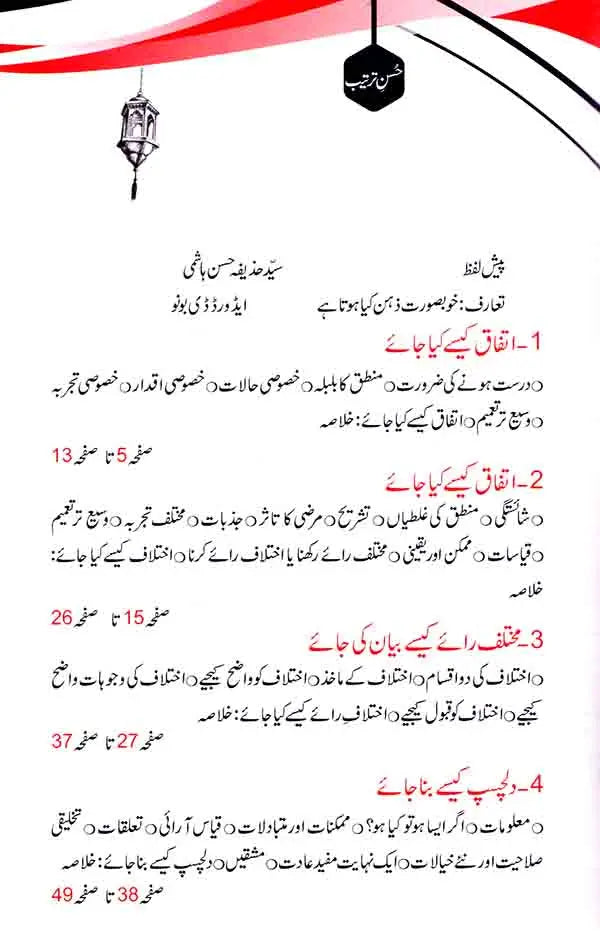 حُسنِ ترتیب
پیش لفظ سیّد حذیفہ حسن ہاشمی
تعارف: خوبصورت ذہن کیا ہوتا ہے ایڈورڈ ڈی بونو
1۔ اتفاق کیسے کیا جائے
○درست ہونے کی ضرورت ○منطق کا بلبلہ ○خصوصی حالات ○خصوصی اقدار ○خصوصی تجربہ
○وسیع تر تعمیم ○اتفاق کیسے کیا جائے: خلاصہ
صفحہ 5 تا صفحہ 13
2۔ اتفاق کیسے کیا جائے
○شائستگی ○منطق کی غلطیاں ○تشریح ○مرضی کا تاثر ○جذبات ○مختلف تجربہ ○وسیع تر تعمیم
○قیاسات ○ممکن اور یقینی ○مختلف رائے رکھنا یا اختلاف رائے کرنا ○اختلاف کیسے کیا جائے:
خلاصہ
صفحہ 15 تا صفحہ 26
3۔ مختلف رائے کیسے بیان کی جائے
○اختلاف کی دو اقسام ○اختلاف کے ماخذ ○اختلاف کو واضح کیجیے ○اختلاف کی وجوہات واضح
کیجیے ○اختلاف کو قبول کیجیے ○اختلافِ رائے کیسے کیا جائے: خلاصہ
صفحہ 27 تا صفحہ 37
4۔ دلچسپ کیسے بنا جائے
○معلومات ○اگر ایسا ہو تو کیا ہو؟ ○ممکنات اور متبادلات ○قیاس آرائی ○تعلقات ○تخلیقی
صلاحیت اور نئے خیالات ○ایک نہایت مفید عادت ○مشقیں ○دلچسپ کیسے بنا جائے: خلاصہ
صفحہ 38 تا صفحہ 49